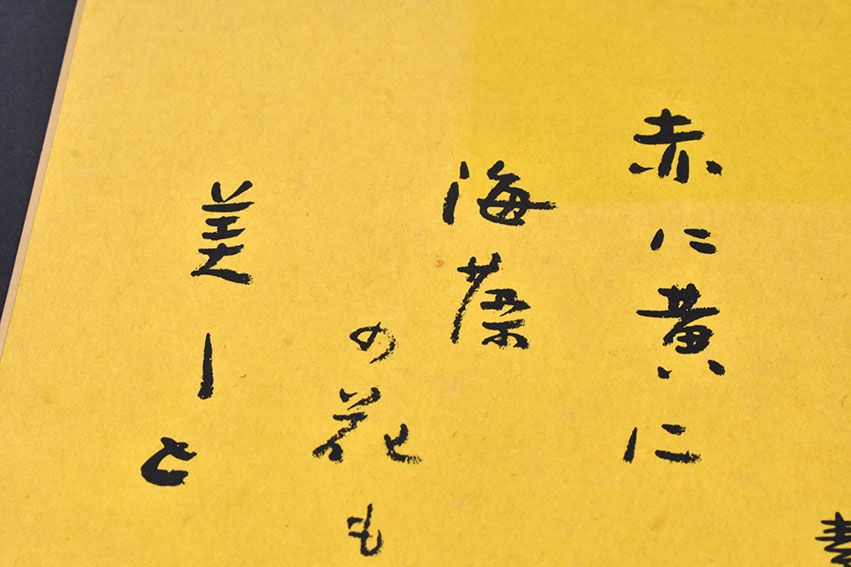 赤に黄に
海藻
の花も
美しと